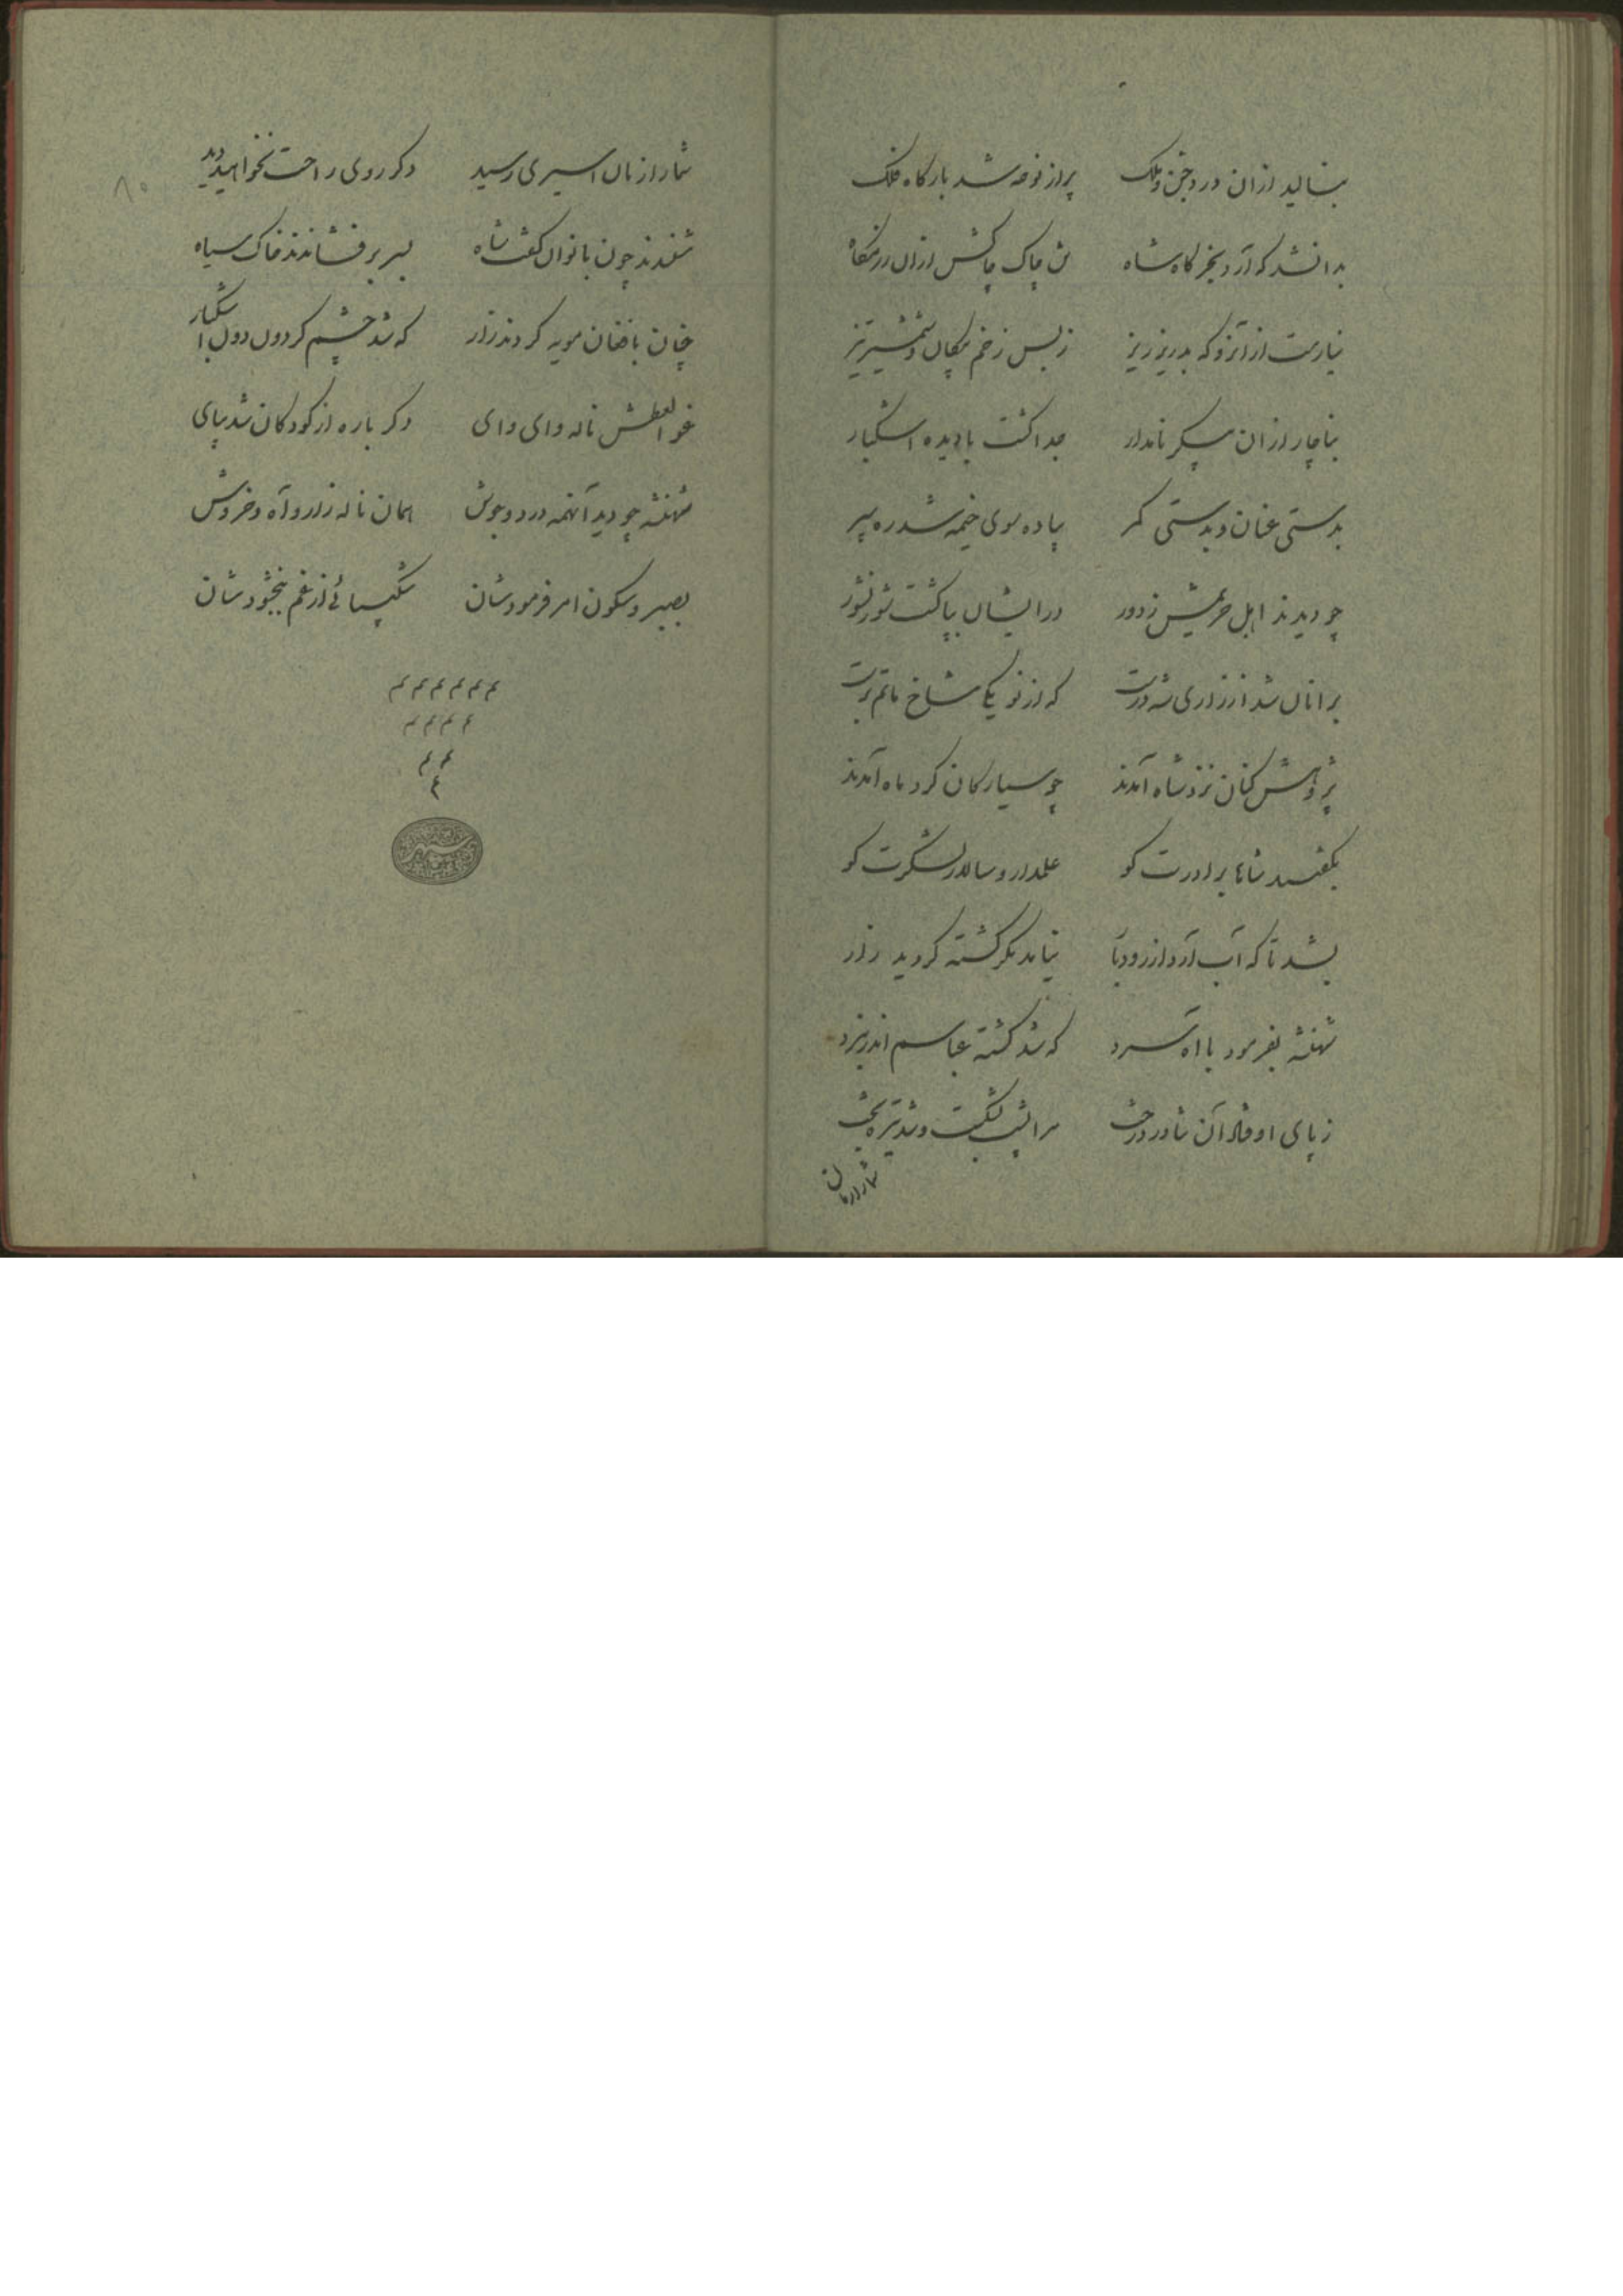 بنالید ازان درد جن و ملک پر از نوحه شد بارگاه فلک
بدانشد که آرد بخرگاه شاه تن چاک چاکش ازان رزمگاه
نیارست ازانرو که بد ریز ریز ز بس زخم پیکان و شمشیر تیز
بناچار ازان پیکر نامدار جدا گشت با دیده اشکبار
بدستی عنان و بدستی کمر پیاده سوی خیمه شد ره سپر
چو دیدند اهل حریمش ز دور در ایشان بپا گشت شور نشور
بر انان شد از زاری شه درست که از نو یکی شاخ ماتم برست
پژوهش کنان نزد شاه آمدند چو سیارگان گرد ماه آمدند
بگفتند شاها برادرت کو علمدار و سالار لشکرت کو
بشد تا که آب آرد از رودبار نیامد مگر کشته گردید زار
شهنشه بفرمود با اه سرد که شد کشته عباسم اندر نبرد
ز پای او فتاد آن شاور درخت مرا پشت بشکست و شد تیره بخت
شما را زمان
۸۰
شما را زمان اسیری رسید دگر روی راحت نخواهید دید
شنیدند چون بانوان گفت شاه بسر بر فشاندند خاک سیاه
چنان با فغان مویه کردند زار که شد چشم گردون دون اشکبار
غو العطش ناله وای وای دگر باره از کودکان شد بپای
شهنشه چو دید آنهمه درد و جوش همان ناله زار و آه و خروش
بصبر و سکون امر فرمودشان شکیبائی از غم ببخشودشان
م م م م م م
م م م م
م م
م